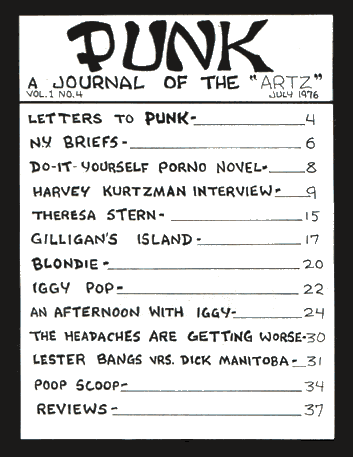 PUNK
A JOURNAL OF THE "ARTZ"
VOL.1 NO.4 JULY 1976
LETTERS TO PUNK- 4
NY BRIEFS- 6
DO-IT-YOURSELF PORNO NOVEL- 8
HARVEY KURTZMAN INTERVIEW- 9
THERESA STERN- 15
GILLIGAN'S ISLAND- 17
BLONDIE- 20
IGGY POP- 22
AN AFTERNOON WITH IGGY- 24
THE HEADACHES ARE GETTING WORSE-30
LESTER BANGS VRS. DICK MANITOBA- 31
POOP SCOOP- 34
REVIEWS- 37